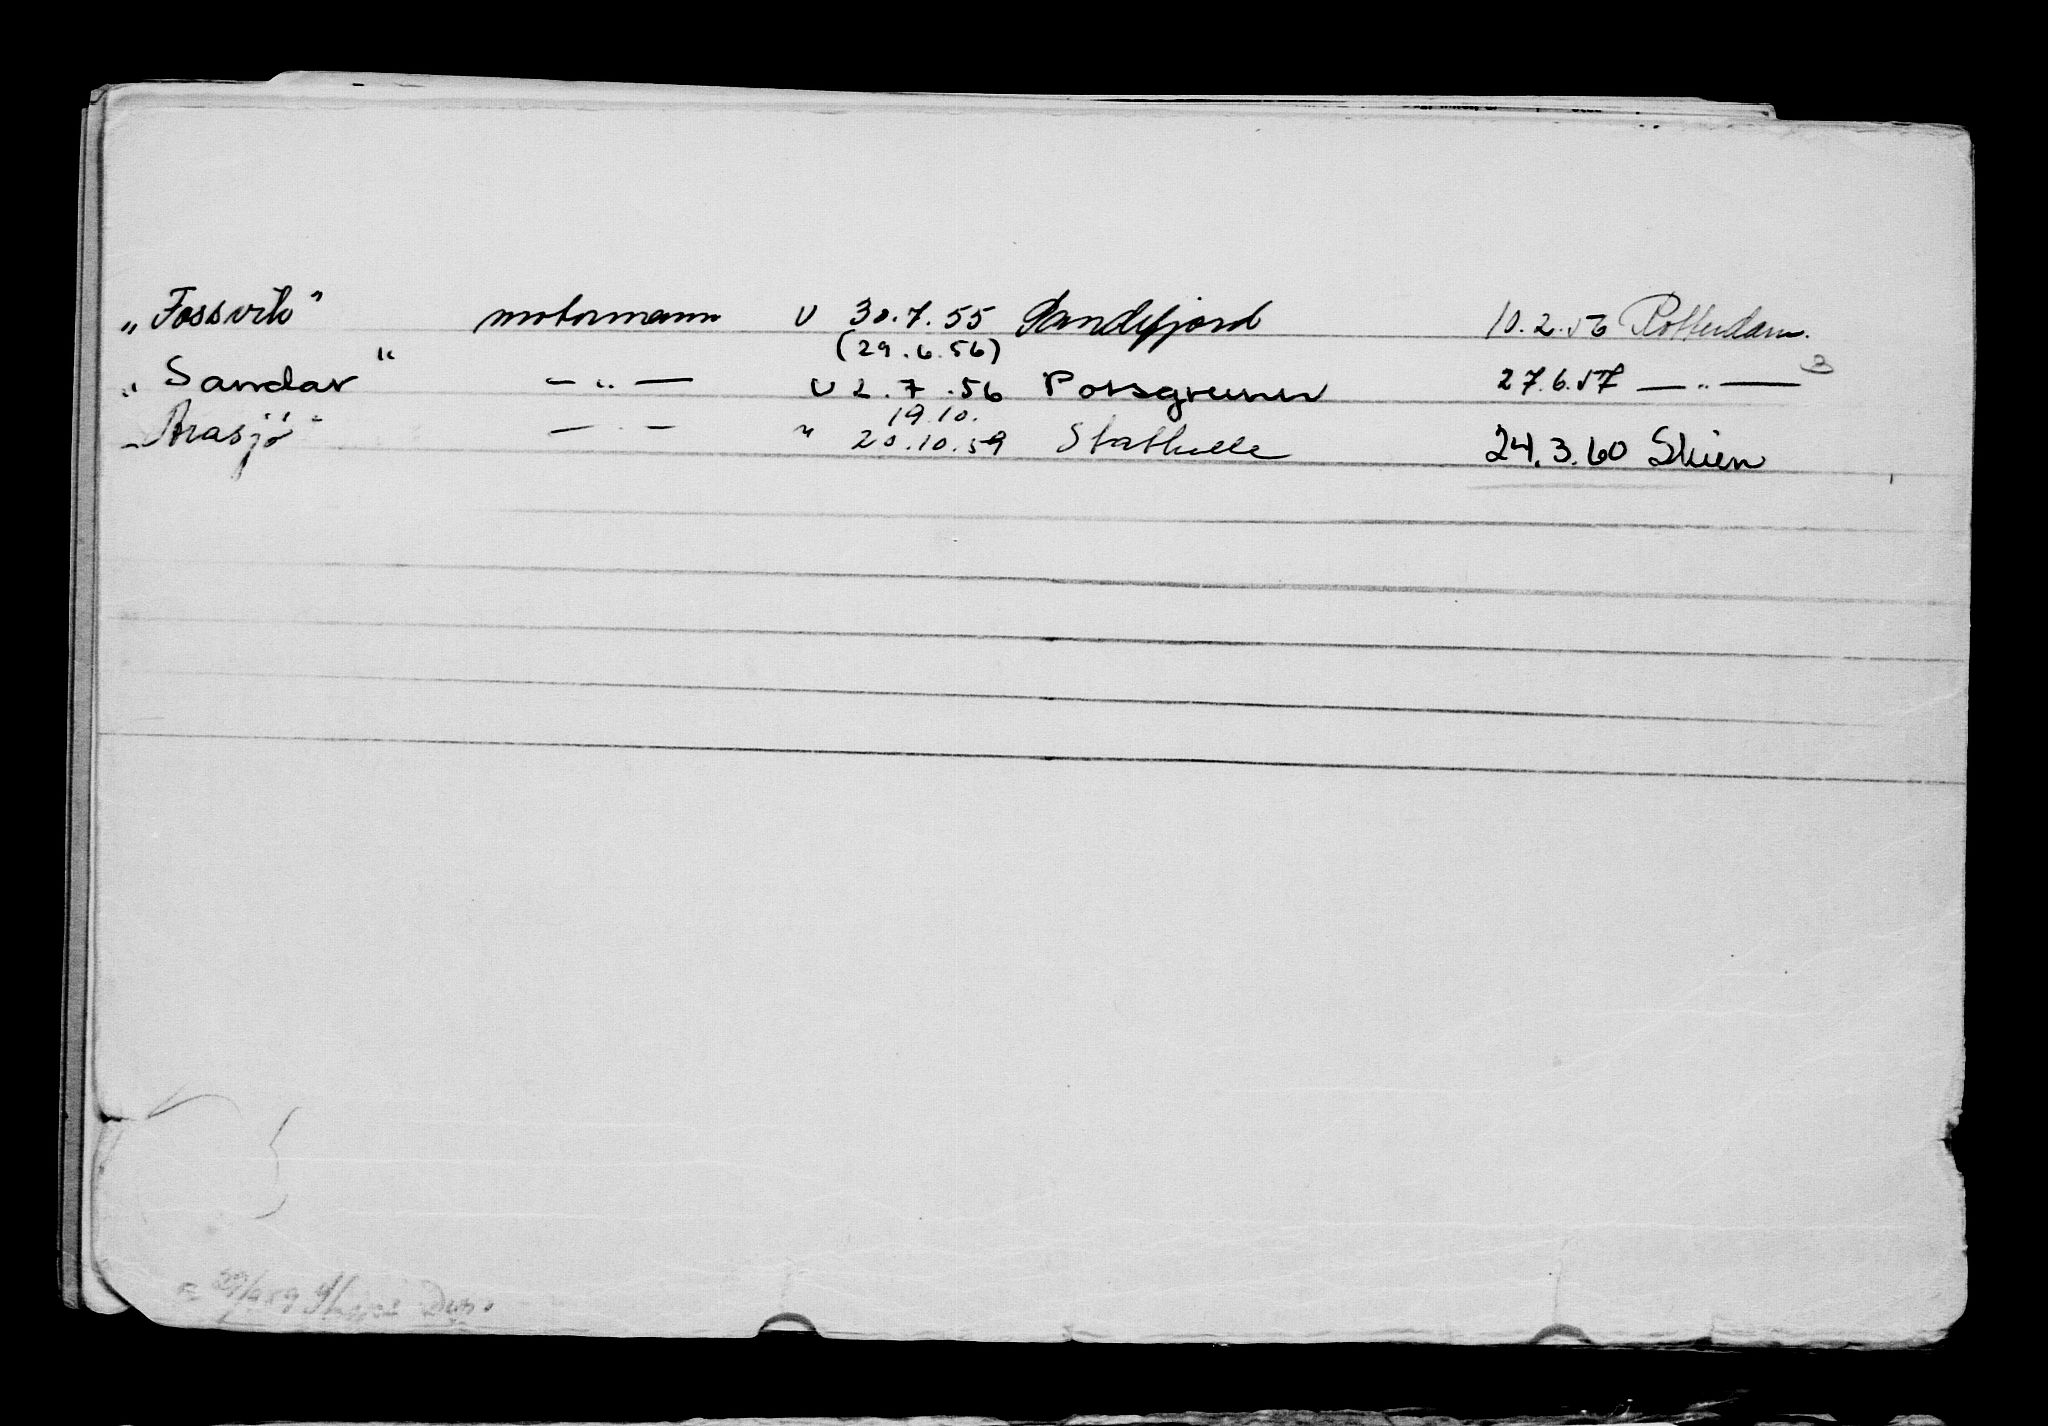 „Fossvik" motormann U 30.7.55 Sandefjord 10.2.56 Rotterdam.
(29.6.56)
„Sandar" — „ — U 2.7.56 Porsgrunn 27.6.57 — „ —
19.10.
"Arasjø" — " — " 20.10.59 Stathelle 24.3.60 Skien